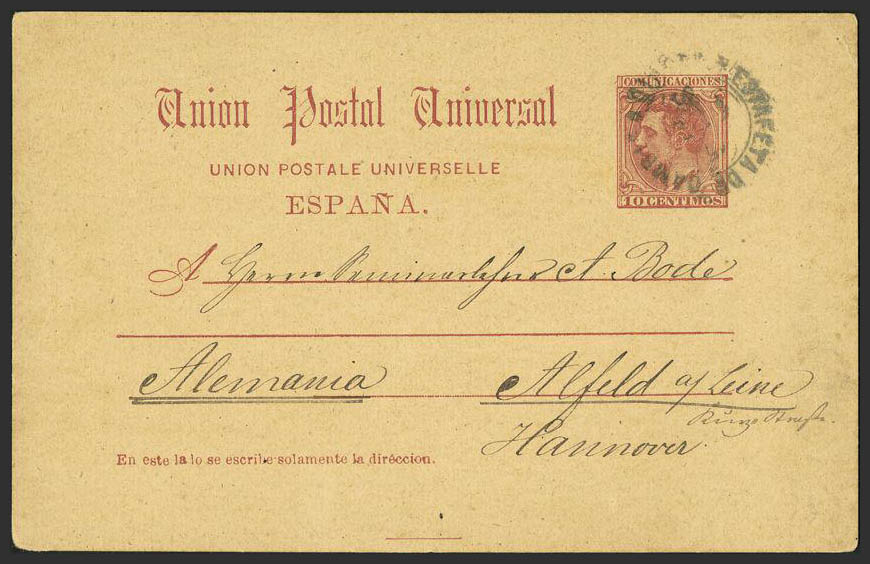 Union Postal Universal
UNION POSTALE UNIVERSELLE
ESPAÑA.
COMUNICACIONES
10 CENTIMOS
ESTAFETA DE CAMBIO
A Herrn Seminarlehrer A. Bode
Alemania
Alfeld a/ Leine
Kurze Straße.
Hannover.
En este la lo se escribe solamente la diréccion.